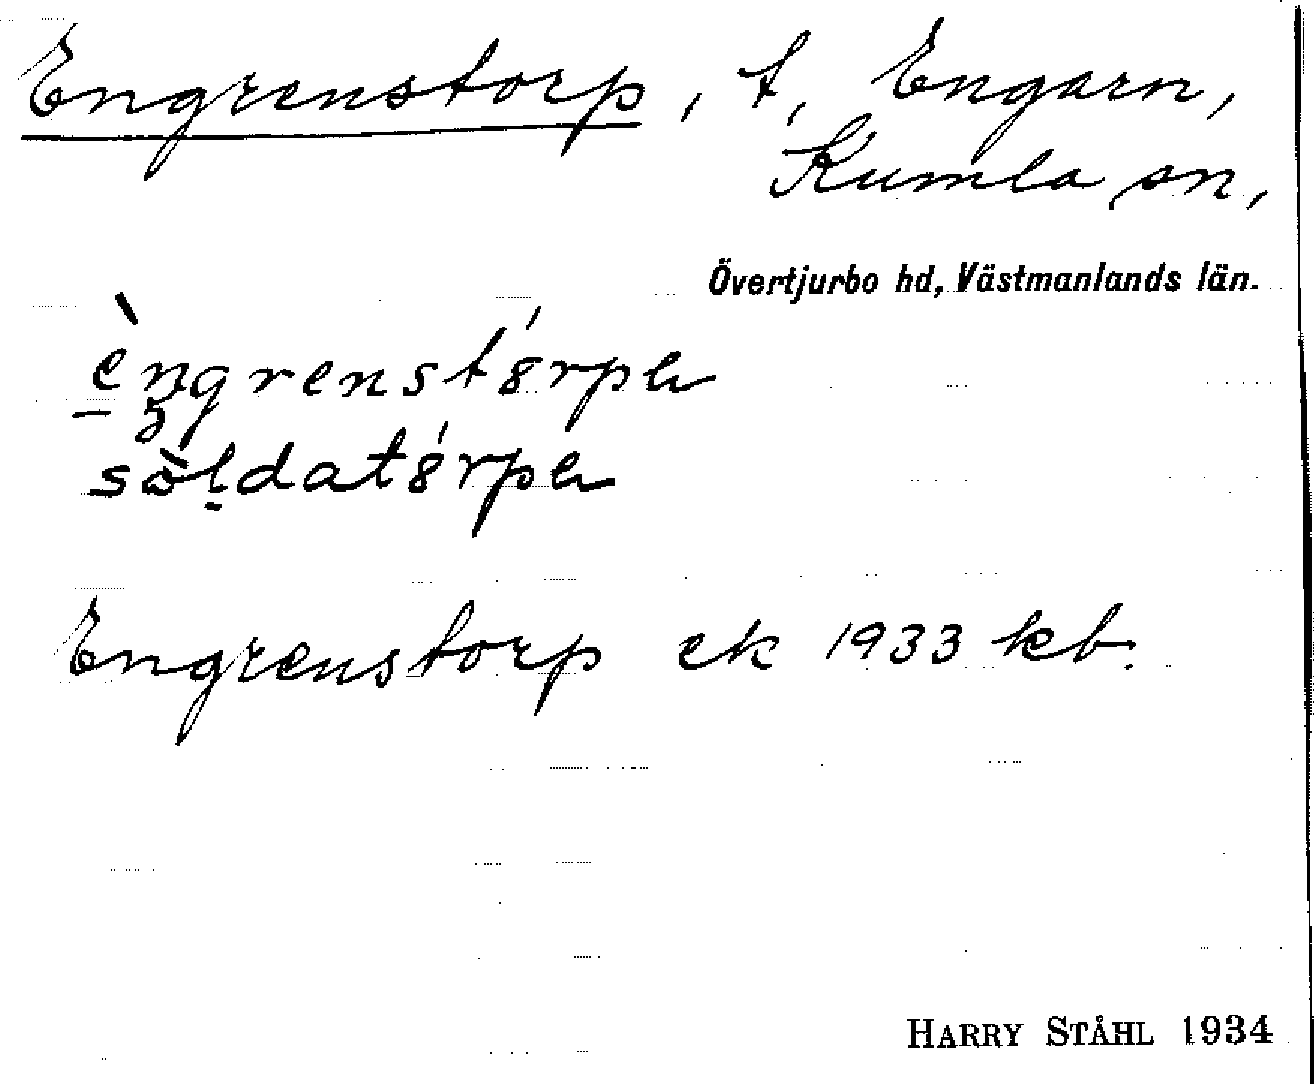 Engrenstorp, t, Engarn,
Kumla sn,
Övertjurbo hd, Västmanlands län.
èngrenstórpe
sòldatórpe
Engrenstorp ek 1933 kb.
HARRY STÅHL 1934